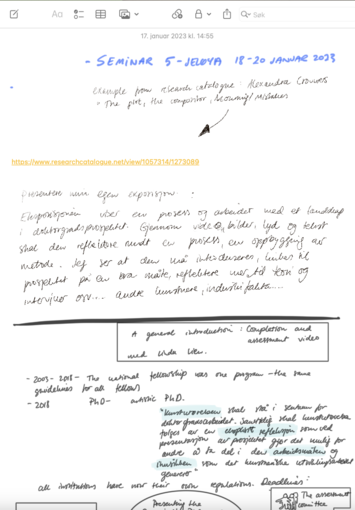 Aa
Søk
17. januar 2023 kl. 14:55
- SEMINAR 5 - JELØYA 18-20 JANUAR 2023
example from research catalogue: Alexandra Crouwers
The plot, the compositor,
https://www.researchcatalogue.net/view/1057314/1273089
Presentere min egen exposition:
Eksposisjonen viser en prosess og arbeidet med et landskap
i doktorgradsprosjektet. Gjennom video, bilder, lyd og tekst
skal den reflektere rundt en prosess, en oppbygging av
metode. Jeg ser at den må introduseres, linkes til
prosjektet på en bra måte, reflektere mer til teori og
intervjuer osv.... andre kunstnere,
A general introduction: Completion and
assessment video
med Linda Lien.
- 2003-2018 - The national fellowship was one program - the same
guidelines for all fellows
- 2018 PhD - artistic PhD.
"kunstnerisk skal stå i sentrum for
doktorgradsarbeidet. Samtidig skal
følges av en eksplisitt refleksjon som ved
presentasjon av prosjektet gjør det mulig for
andre å ta del i den arbeidsmåten og
innsikten som det kunstneriske utviklingsarbeidet
genererer"
all institutions have now their own regulations. Deadlines:
Presenting the
The assessment
committee